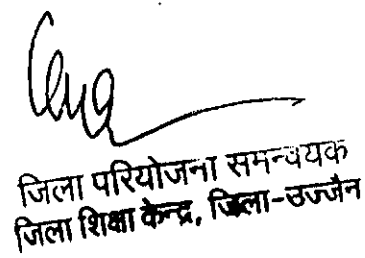 जिला परियोजना समन्वयक
जिला शिक्षा केन्द्र, जिला-उज्जैन